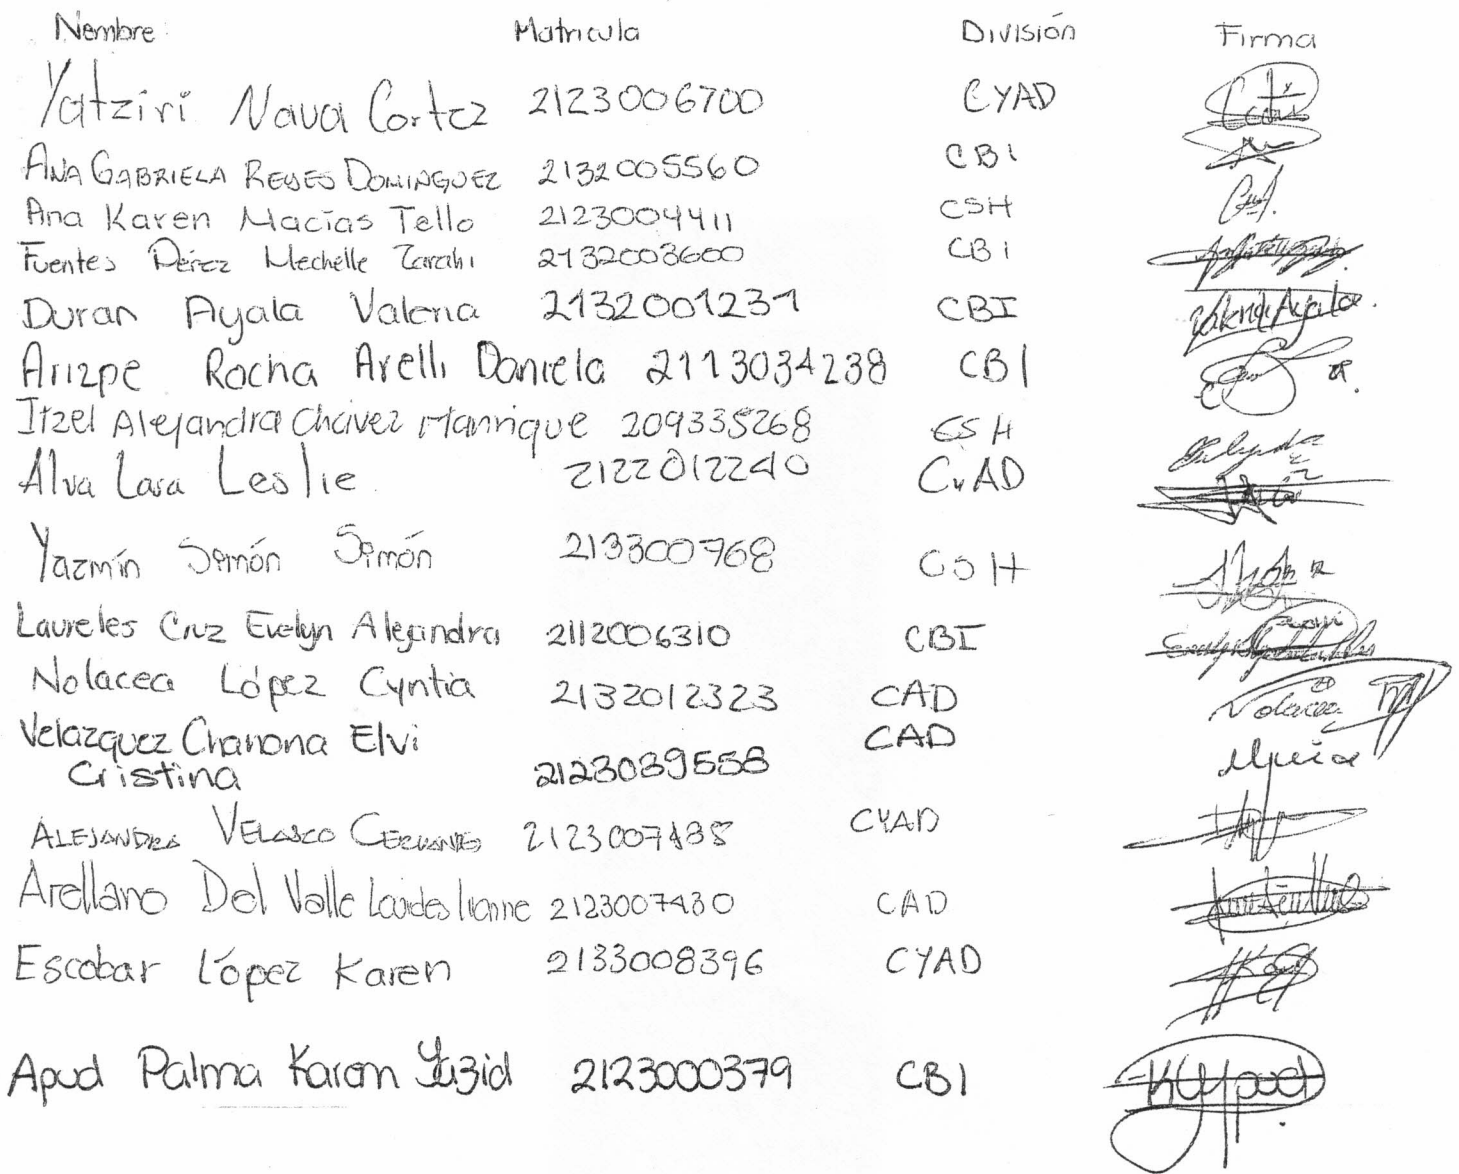 Nombre Matricula División Firma
Yatziri Nava Cortez 2123006700 CYAD
ANA GABRIELA REYES DOMINGUEZ 2132005560 CBI
Ana Karen Macías Tello 2123004411 CSH
Fuentes Pérez Mechelle Zarahi 2132003600 CBi
Duran Ayala Valeria 2132001231 CBI
Arizpe Rocha Arelli Daniela 2113034238 CBI
Itzel Alejandra Chávez Manrique 209335268 CSH
Alva Lara Leslie 2122012240 CyAD
Yazmín Simón Simón 213300768 CSH
Laureles Cruz Evelyn Alejandra 2112006310 CBI
Nolacea López Cyntia 2132012323 CAD Nolacea
Velazquez Chanona Elvi CAD
Cristina 2123039558
ALEJANDRA VELASCO CERVANTES 2123007438 CYAD
Arellano Del Valle Lourdes Ivonne 2123007430 CAD
Escobar López Karen 2133008396 CYAD
Apud Palma Karen Yazid 2123000379 CBI KYApud